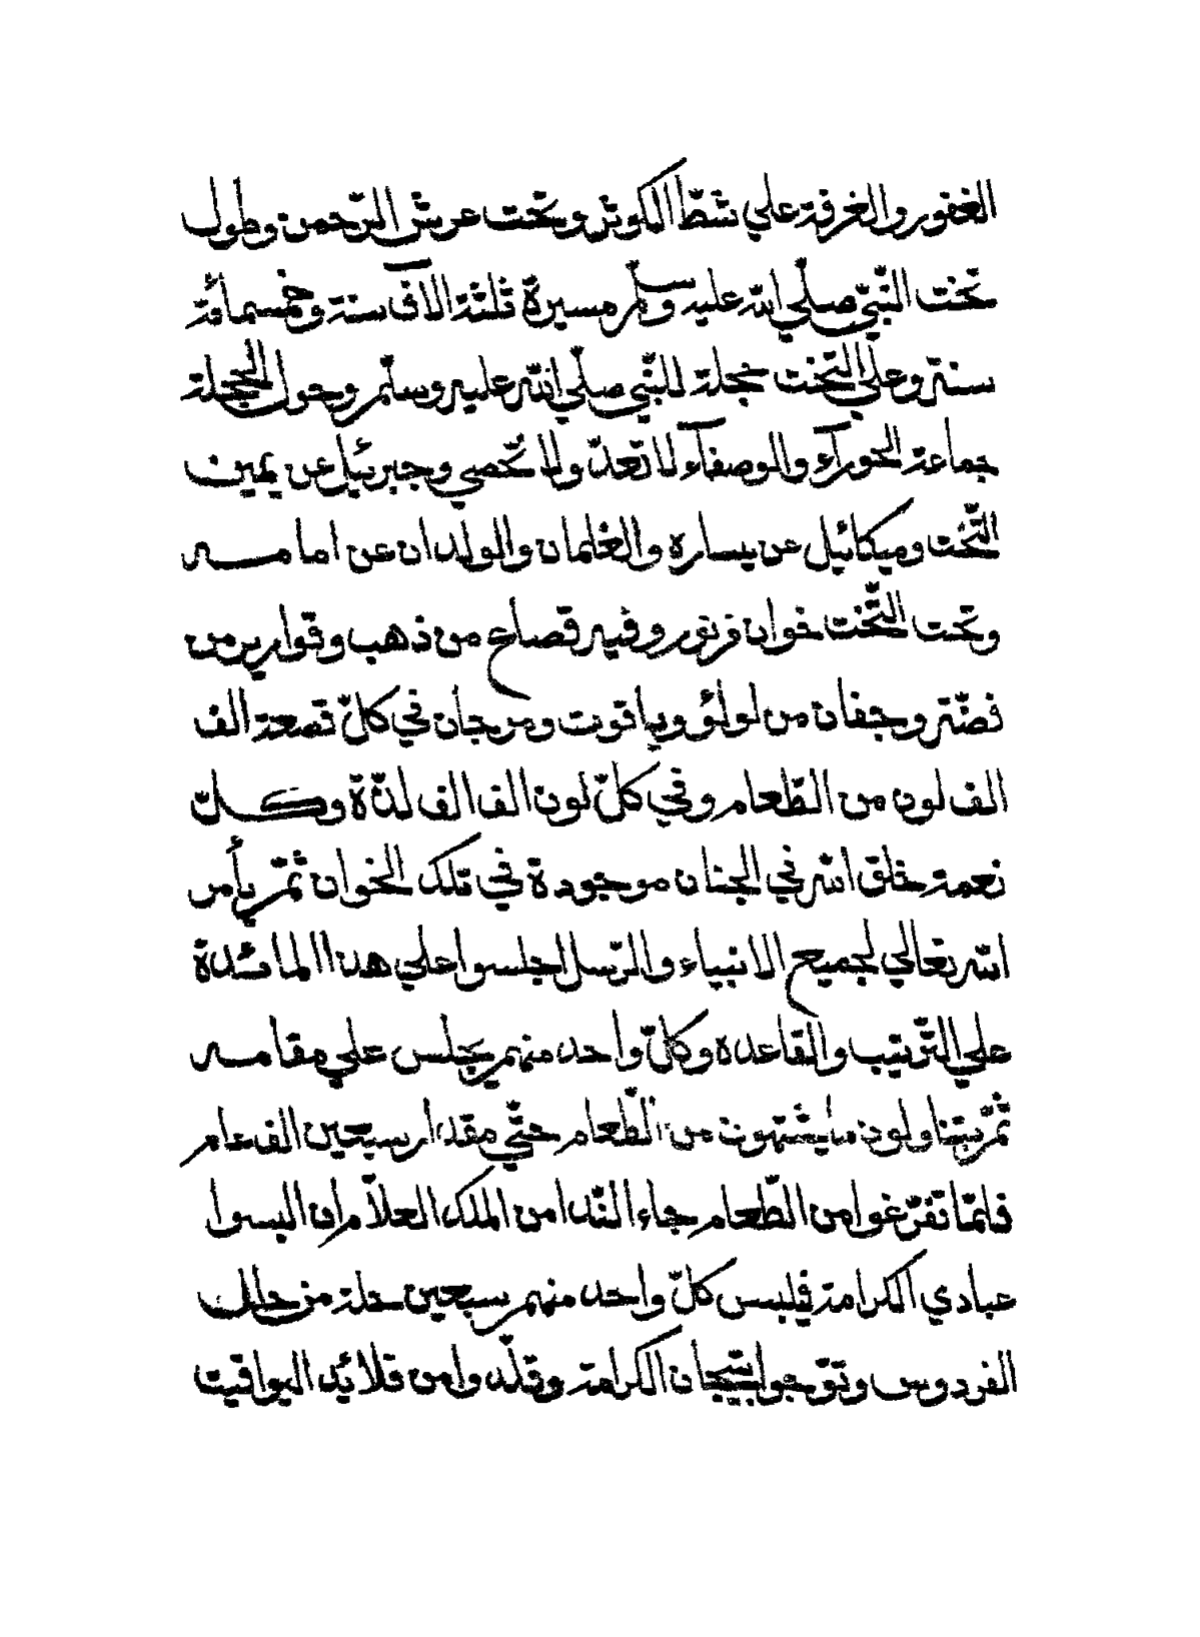 الغفور والغرفة علي شطّ الكوثر وتحت عرش الرّحمن وطول
تخت النّبيّ صلّي الله عليه وسلّم مسيرة ثلثة الآف سنة وخمسمائة
سنة وعلي التّخت حجلة للنّبي صلّي الله عليه وسلّم وحول الحجلة
جماعة الحورآء والوصفآء لا تعدّ ولا تحصي وجبرئيل عن يمين
التّخت وميكائيل عن يساره والغلمان والولدان عن امامه
وتحت التّخت خوان من نور وفيه قصاع من ذهب وقوارير من
فضّة وجفان من لولؤ وياقوت ومرجان في كلّ قصعة الف
الف لون من الطّعام وفي كلّ لون الف الف لذّة وكلّ
نعمة خلق الله في الجنان موجودة في تلك الخوان ثمّ يأمر
الله تعالي لجميع الانبياء والرّسل اجلسوا علي هذا المائدة
علي التّرتيب والقاعده وكلّ واحد منهم يجلس علي مقامه
ثمّ يتناولون ما يشتهون من الطّعام حتّي مقدار سبعين الف عام
فلمّا تفرّغوا من الطّعام جاء النّدا من الملك العلاّم ان البسوا
عبادي الكرامة فيلبس كلّ واحد منهم سبعين حلة من حلل
الفردوس وتوّجوا بتيجان الكرامة وقلّدوا من قلائد اليواقيت